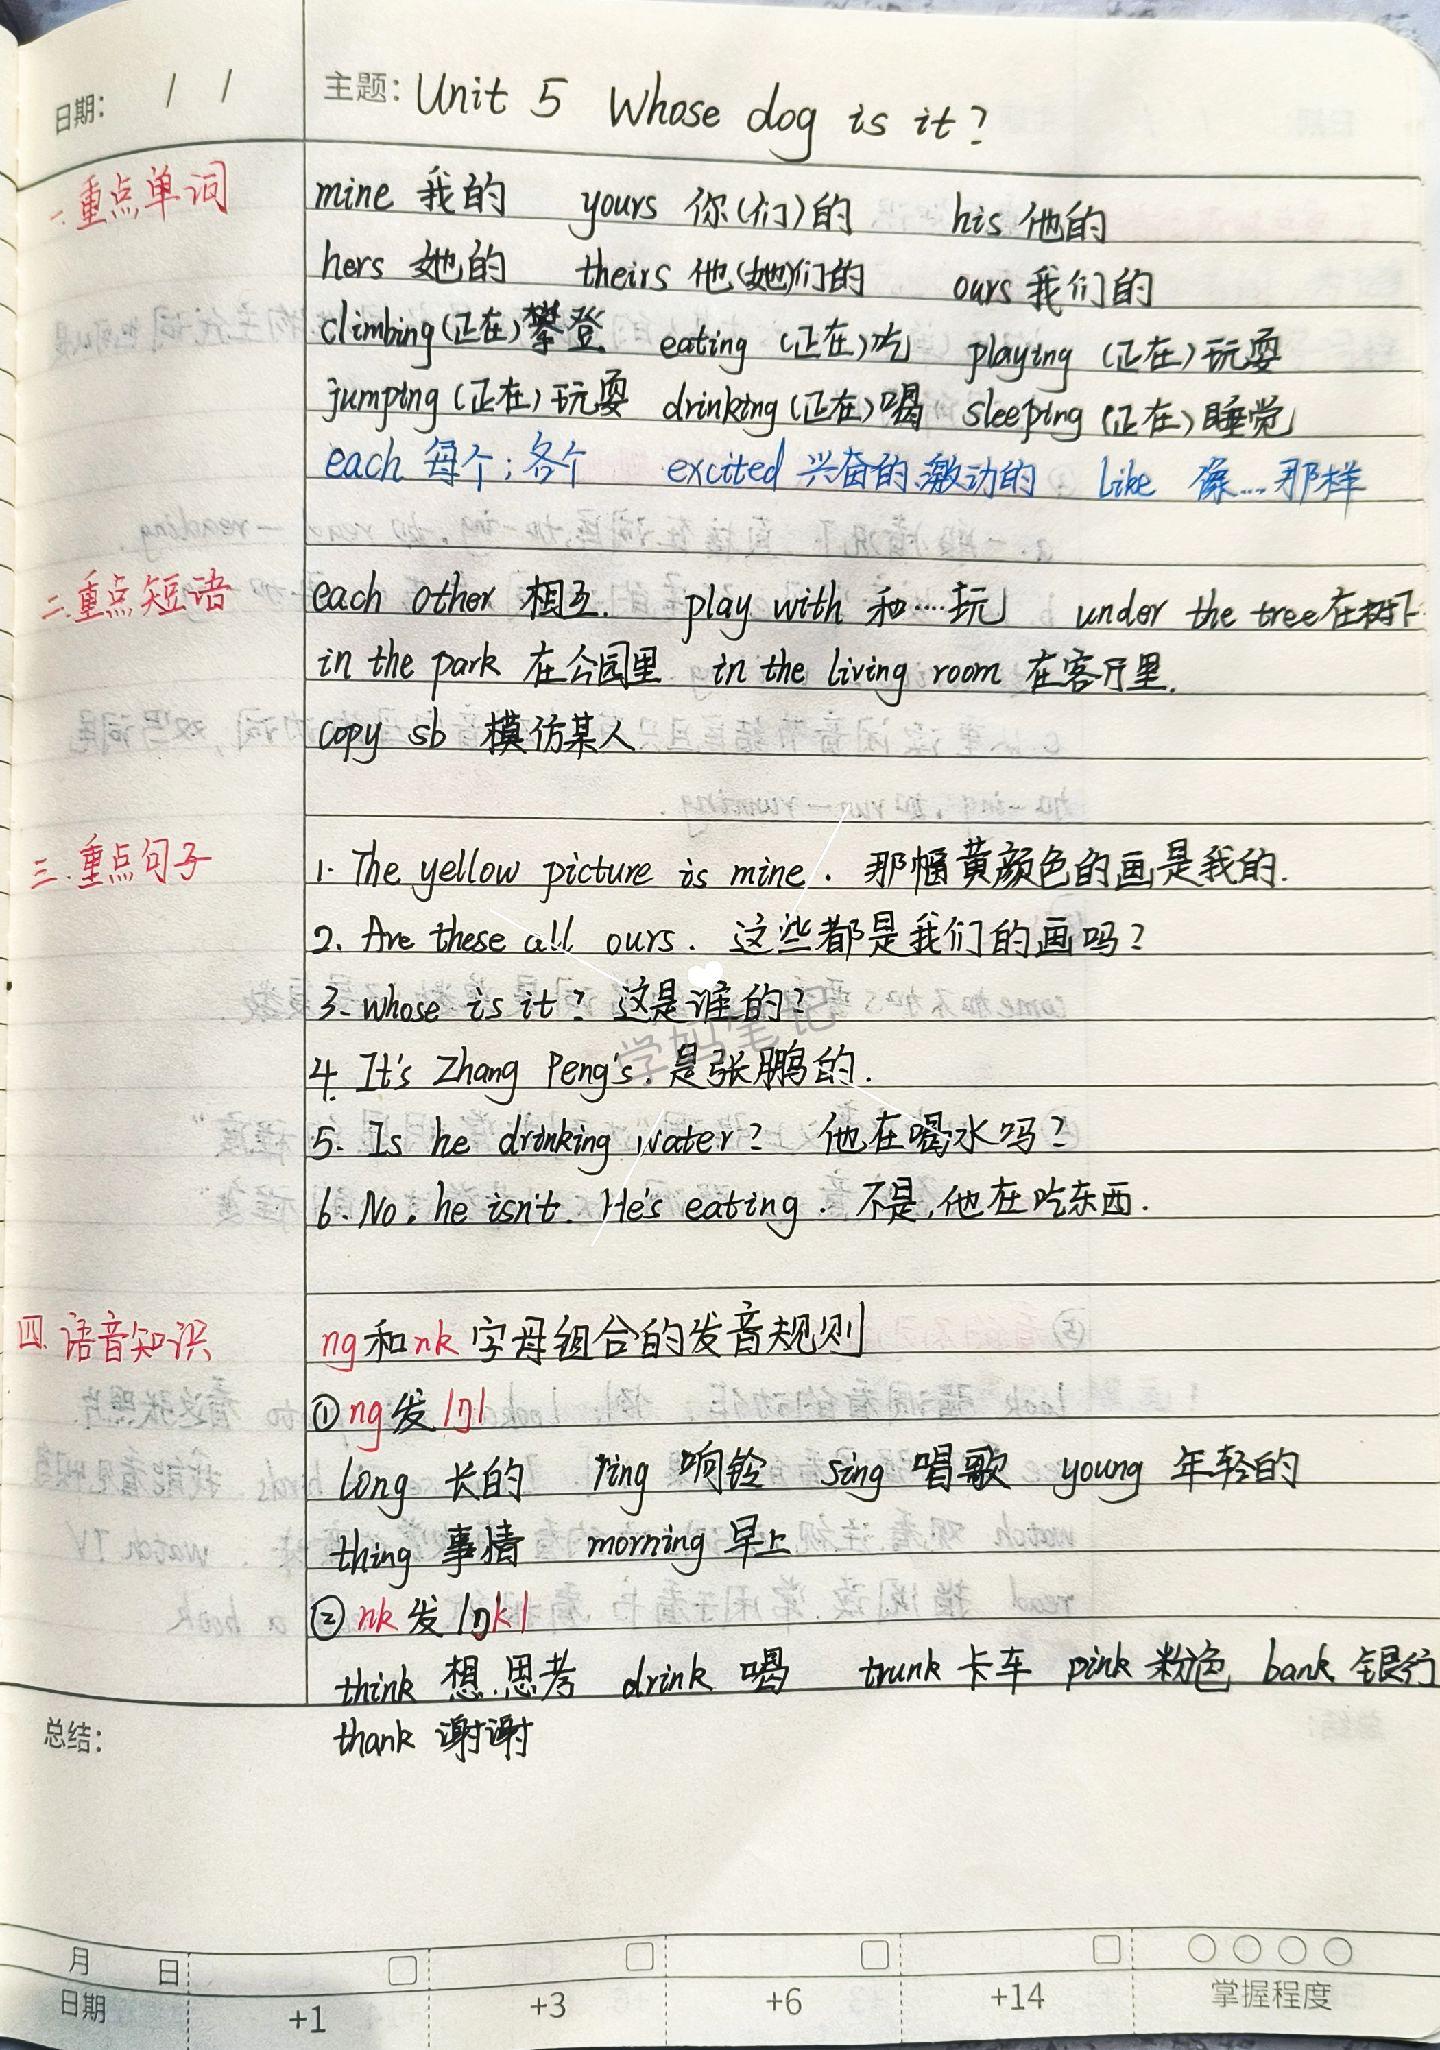 日期: / /
主题: Unit 5 Whose dog is it?
一.重点单词
mine 我的 yours 你(们)的 his 他的
hers 她的 theirs 他(她)们的 ours 我们的
climbing(正在)攀登 eating (正在)吃 playing (正在)玩耍
jumping(正在)玩耍 drinking(正在)喝 sleeping(正在)睡觉
each 每个;各个 excited 兴奋的、激动的 like 像...那样
二.重点短语
each other 相互. play with 和....玩 under the tree在树下
in the park 在公园里 in the living room 在客厅里.
copy sb 模仿某人
三.重点句子
1. The yellow picture is mine. 那幅黄颜色的画是我的.
2. Are these all ours. 这些都是我们的画吗?
3. whose is it? 这是谁的?
4. It's Zhang Peng's. 是张鹏的.
5. Is he drinking water? 他在喝水吗?
6. No, he isn't. He's eating. 不是,他在吃东西.
学妈笔记
四.语音知识
ng和nk字母组合的发音规则
①ng发/ŋ/
long 长的 ring 响铃 sing 唱歌 young 年轻的
thing 事情 morning 早上
②nk发/ŋk/
think 想.思考 drink 喝 trunk 卡车 pink 粉色 bank 银行
thank 谢谢
总结:
月 日
日期 +1 +3 +6 +14 掌握程度